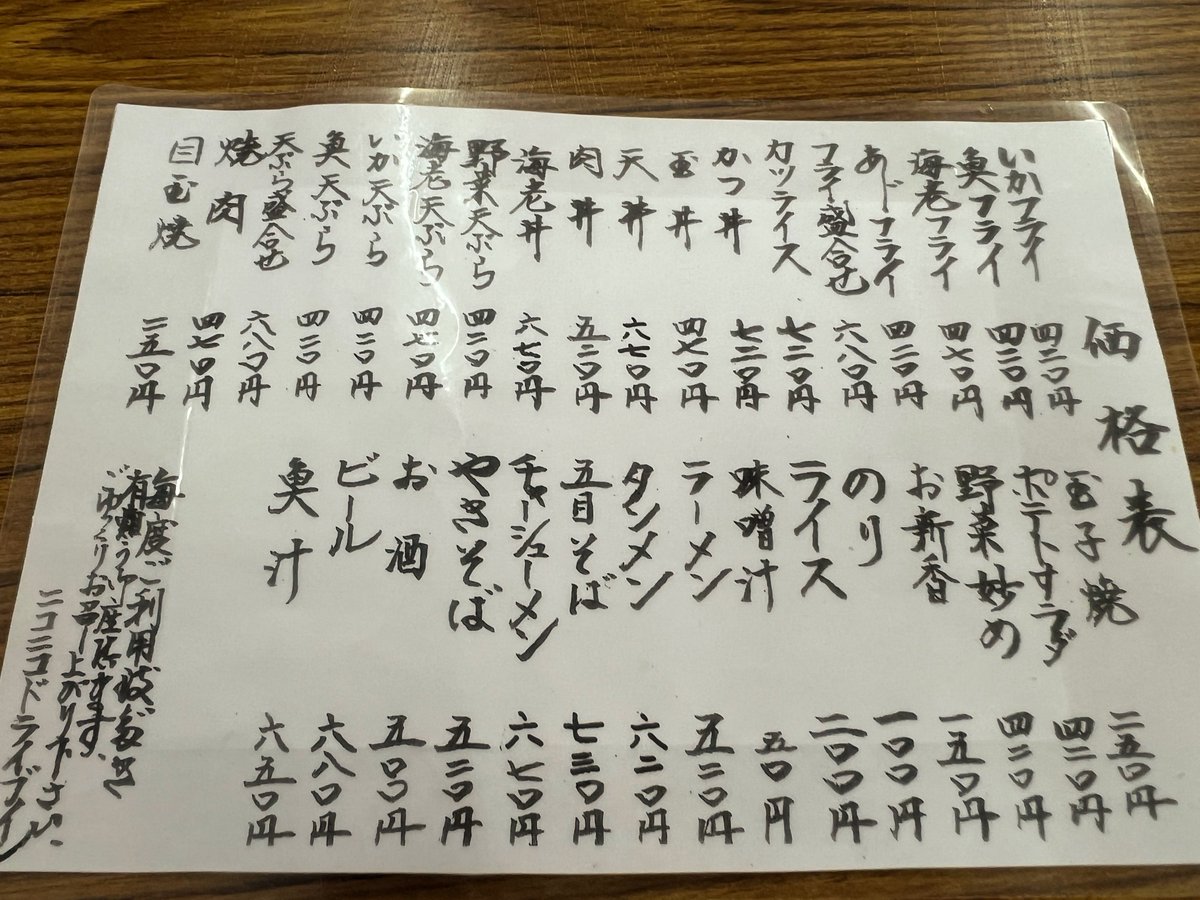 価格表
いかフライ 四二〇円
魚フライ 四二〇円
海老フライ 四七〇円
あじフライ 四二〇円
フライ盛合せ 六八〇円
カツライス 七二〇円
かつ丼 七二〇円
玉丼 四七〇円
天丼 六七〇円
肉丼 五二〇円
海老丼 六七〇円
野菜天ぷら 四二〇円
海老天ぷら 四七〇円
いか天ぷら 四二〇円
魚天ぷら 四二〇円
天ぷら盛合せ 六八〇円
焼肉 四七〇円
目玉焼 二五〇円
玉子焼 二五〇円
ポテトサラダ 四二〇円
野菜妙め 四二〇円
お新香 一五〇円
のり 一〇〇円
ライス 二〇〇円
味噌汁 五〇円
ラーメン 五二〇円
タンメン 六二〇円
五目そば 七三〇円
チャーシューメン 六七〇円
やきそば 五二〇円
お酒 五〇〇円
ビール 六八〇円
魚汁 六五〇円
毎度ご利用
ごゆっくりお召し上がり下さい、
ニコニコドライブイン